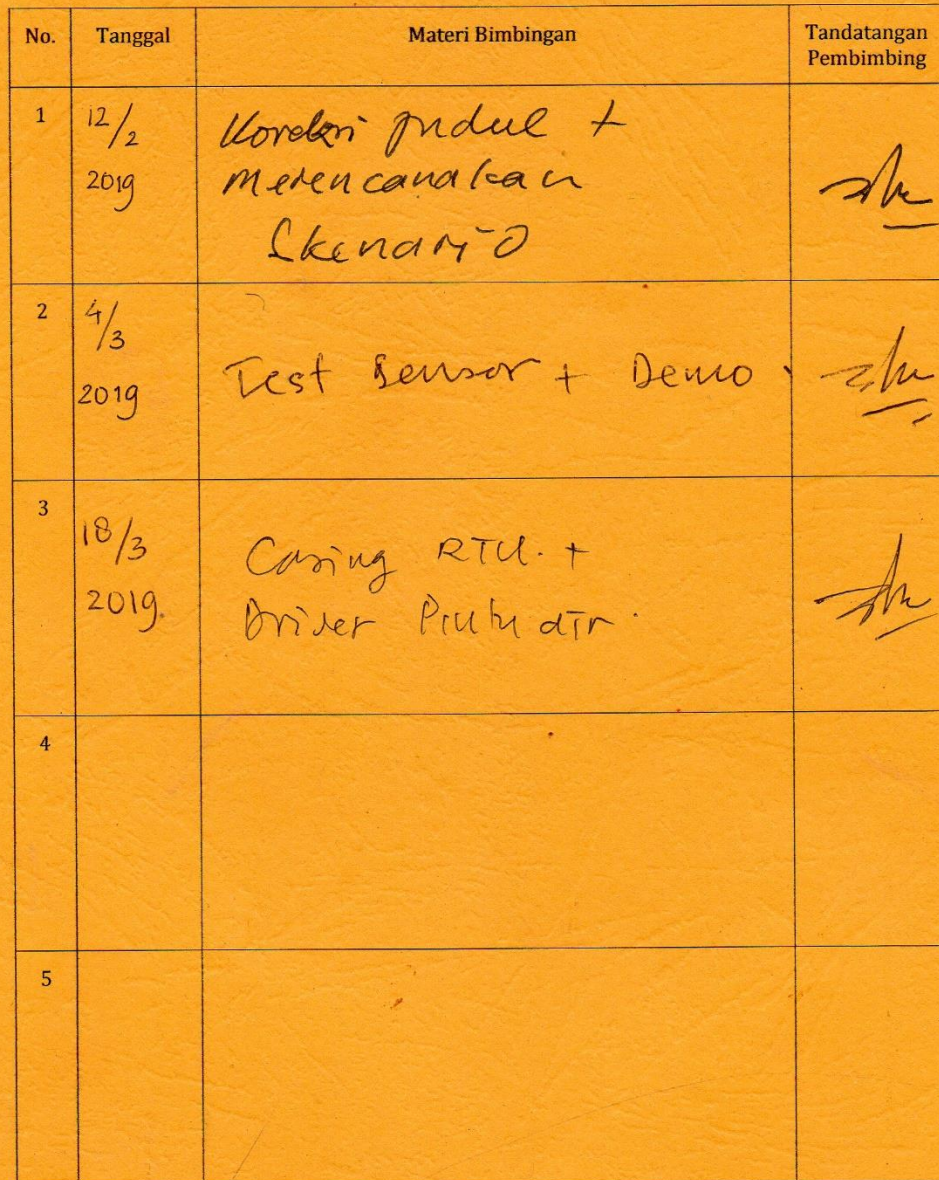 No.
Tanggal
Materi Bimbingan
Tandatangan
Pembimbing
1
12/2
2019
Koreksi judul +
merencanakan
Skenario
2
4/3
2019
Test Sensor + Demo
3
18/3
2019.
Casing RTU. +
Driver Pintu air.
4
5